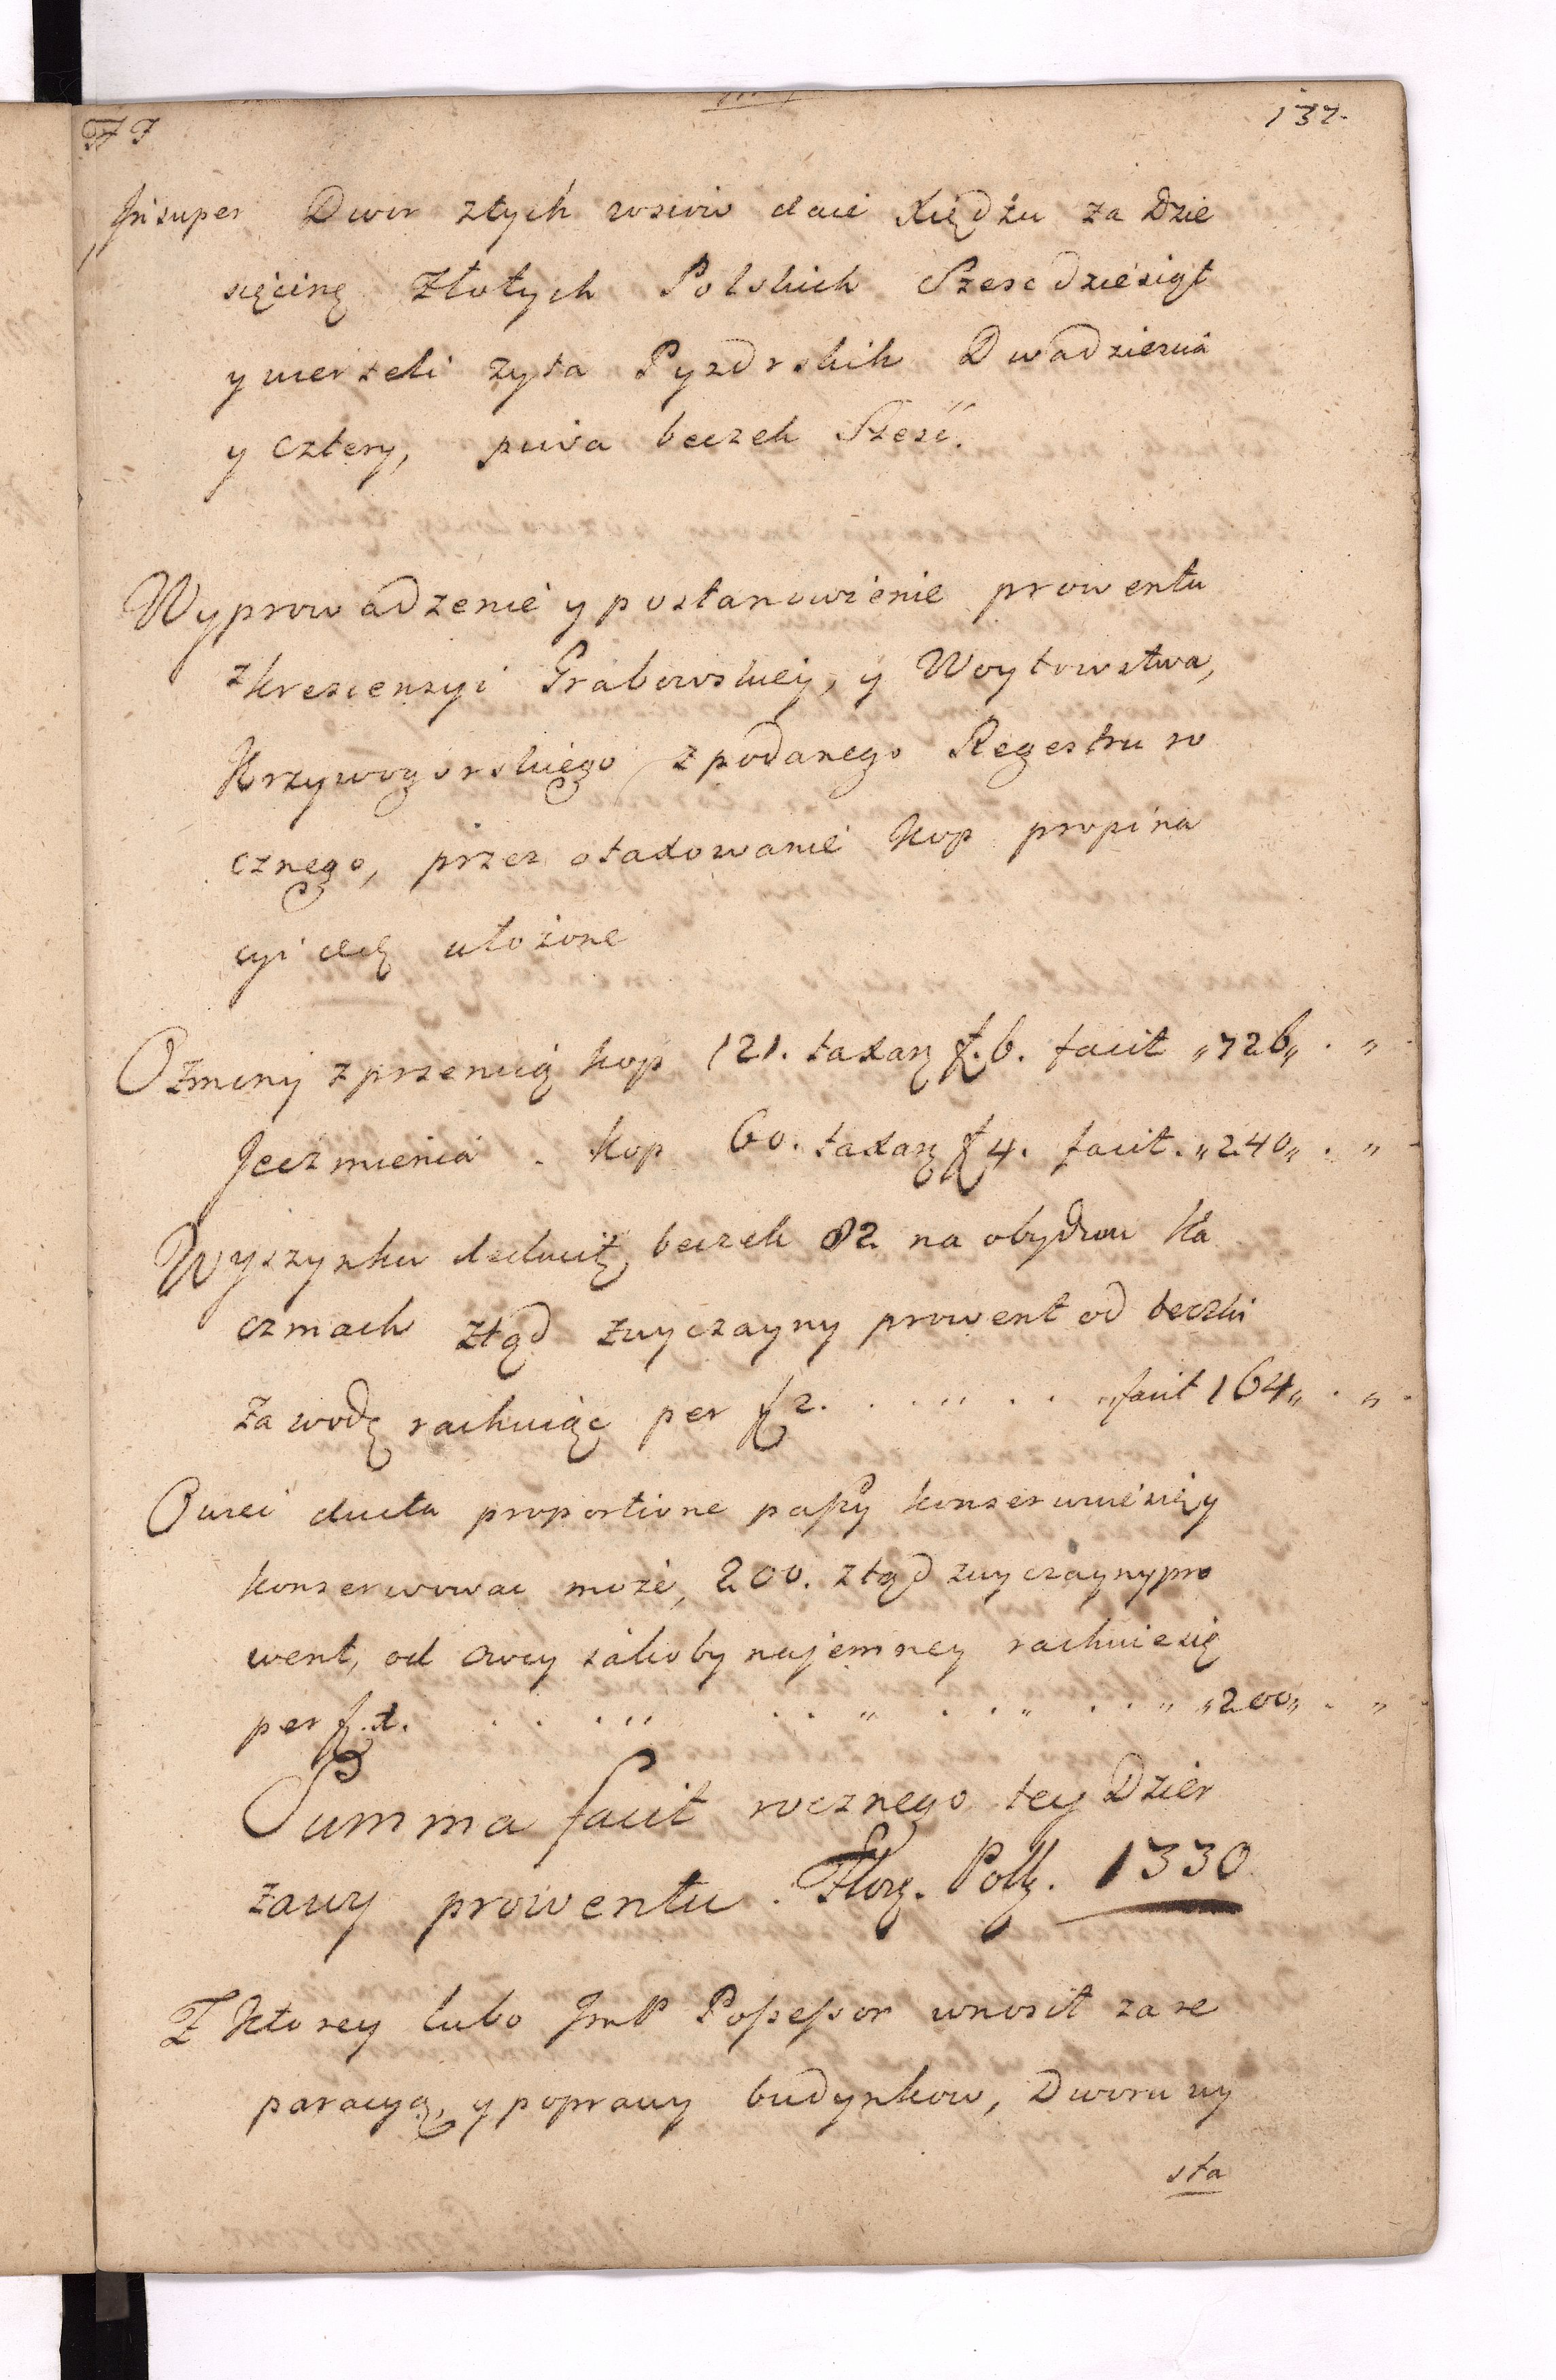 137.
Insuper Dwor ztych wsiow daie Xiędzu za Dzie
sięcinę Złotych Polskich Szescdziesiąt
y wierteli zyta Pyzdrskich Dwadziescia
y cztery, piwa beczek Szesć.
Wyprowadzenie y postanowienie prowentu
zkrescensyi Grabowskiey, y Woytowstwa,
Krzywogorskiego z podanego Regestru ro
cznego, przez otaxowanie kop propina
cyi etc ułożone
Ozminy z przenicą kop 121. taxarꝫ f. 6. facit „726„ . „
Jęczmienia . kop 60. taxarꝫ f 4. facit. „240„ . „
Wyszynku deducitꝫ beczek 82 na obydwu ka
czmach ztąd zwyczayny prowent od beczki
za wodę rachuiąc per f 2. . . „ . . „facit 164„ . „
Owiec ducta proportione paszy konserwuie się y
konserwowac może, 200. ztąd zwyczayny pro
went, od owcy jakoby najemney rachuie się
per f. 1. . . . „ . . „ . . „ . . „ „200„ . „
Summa facit rocznego tey Dzier
zawy prowentu . Florꝫ. Pollꝫ. 1330
Z ktorey lubo JmP Possessor wnosił za re
paracyą, y poprawy budynkow, Dworu wy
sta